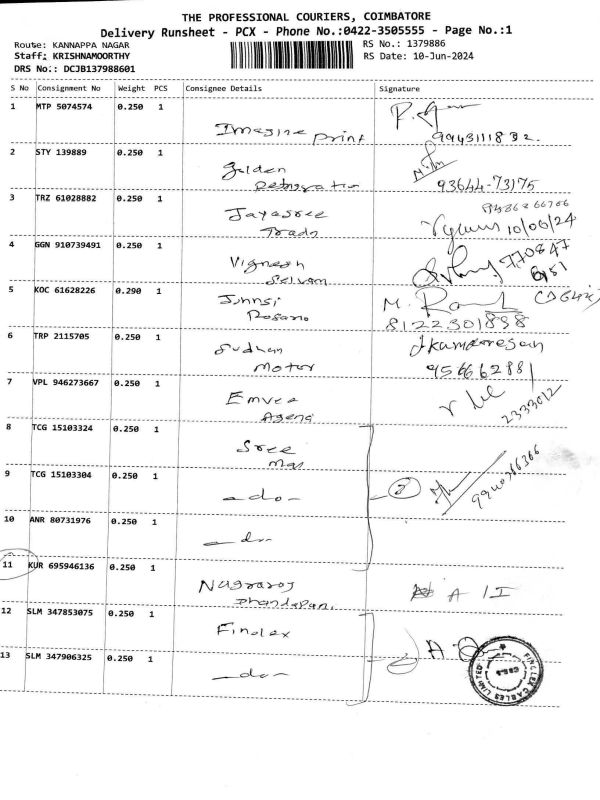 THE PROFESSIONAL COURIERS, COIMBATORE
Delivery Runsheet - PCX - Phone No.:0422-3505555 - Page No.:1
Route: KANNAPPA NAGAR RS No.: 1379886
Staff: KRISHNAMOORTHY RS Date: 10-Jun-2024
DRS No.: DCJB137988601
S No Consignment No Weight PCS Consignee Details Signature
1 MTP 5074574 0.250 1
Imagine print
9943111832.
2 STY 139889 0.250 1
Golden
93644-73175
3 TRZ 61028882 0.250 1
Jayasree
Trade 10/06/24
4 GGN 910739491 0.250 1
Vignesh
Selvam
5 KOC 61628226 0.290 1
Jhnsi M.
Rosario 8122301898
6 TRP 2115705 0.250 1
Sudhan Jkumaresan
Motor 9566662881
7 VPL 946273667 0.250 1
Emvee
Agenc 2333012
8 TCG 15103324 0.250 1
Sree
Mas
9 TCG 15103304 0.250 1
-do- 2
10 ANR 80731976 0.250 1
-do-
11 KUR 695946136 0.250 1
Nagraraj
Dhandapani
12 SLM 347853075 0.250 1
Finolex
13 SLM 347906325 0.250 1
-do-
FINOLEX CABLES LIMITED